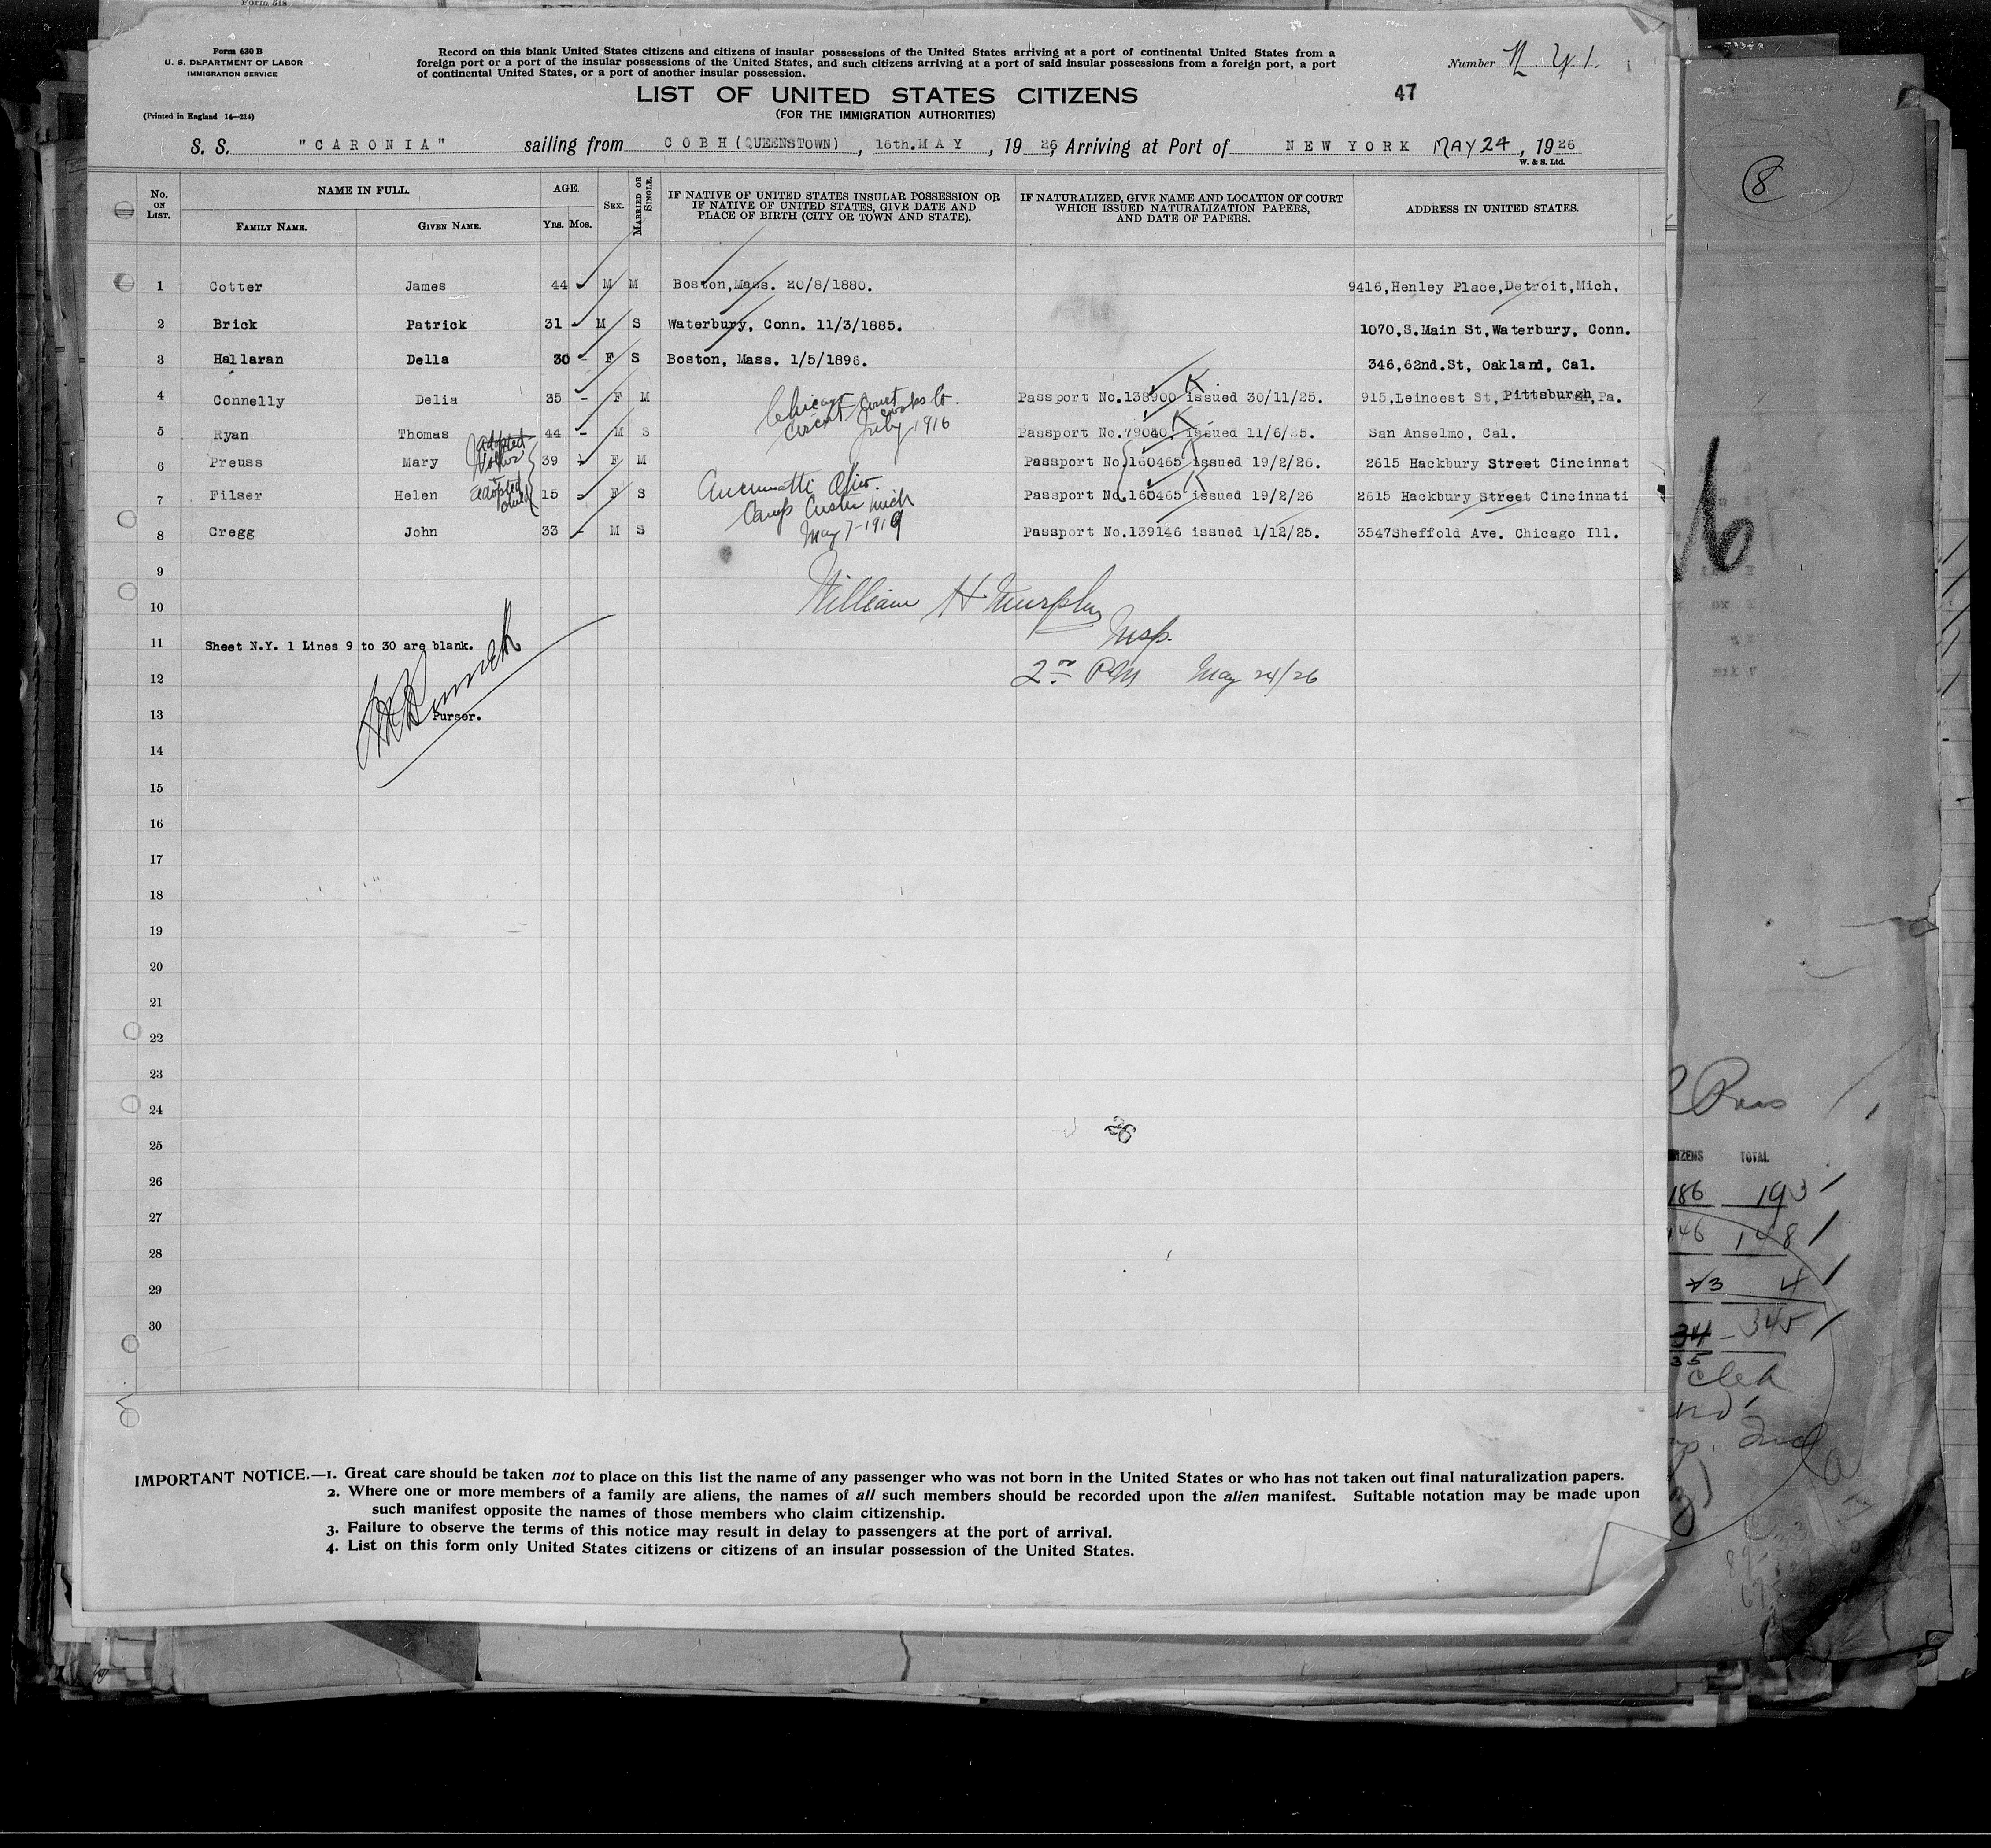 Form 630 B
U. S. DEPARTMENT OF LABOR
IMMIGRATION SERVICE
(Printed in England 14—214)
Record on this blank United States citizens and citizens of insular possessions of the United States arriving at a port of continental United States from a
foreign port or a port of the insular possessions of the United States, and such citizens arriving at a port of said insular possessions from a foreign port, a port
of continental United States, or a port of another insular possession.
Number N. Y. 1.
LIST OF UNITED STATES CITIZENS
47
(FOR THE IMMIGRATION AUTHORITIES)
S. S. "CARONIA" sailing from COBH (QUEENSTOWN), 16th. MAY, 1926, Arriving at Port of NEW YORK MAY 24, 1926
W. & S. Ltd.
8
No. ON LIST. NAME IN FULL. AGE. SEX. MARRIED OR SINGLE. IF NATIVE OF UNITED STATES INSULAR POSSESSION OR IF NATIVE OF UNITED STATES, GIVE DATE AND PLACE OF BIRTH (CITY OR TOWN AND STATE). IF NATURALIZED, GIVE NAME AND LOCATION OF COURT WHICH ISSUED NATURALIZATION PAPERS, AND DATE OF PAPERS. ADDRESS IN UNITED STATES.
FAMILY NAME. GIVEN NAME. YRS. MOS.
1 Cotter James 44 M M Boston, Mass. 20/8/1880. 9416, Henley Place, Detroit, Mich.
2 Brick Patrick 31 M S Waterbury, Conn. 11/3/1885. 1070, S. Main St, Waterbury, Conn.
3 Hallaran Della 30 - F S Boston, Mass. 1/5/1896. 346, 62nd. St, Oakland, Cal.
4 Connelly Delia 35 - F M Passport No. 138900 issued 30/11/25. 915, Leincest St, Pittsburgh, Pa.
Chicago
Circuit Court Cooks Co.
July 1916
5 Ryan Thomas 44 - M S Passport No. 79040. issued 11/6/25. San Anselmo, Cal.
6 Preuss Mary adopted Mother 39 F M Passport No. 160465 issued 19/2/26. 2615 Hackbury Street Cincinnat
7 Filser Helen adopted child 15 - F S Passport No. 160465 issued 19/2/26 2615 Hackbury Street Cincinnati
Cincinnatti Ohio.
Camp Custer Mich
May 7-1919
8 Cregg John 33 - M S Passport No. 139146 issued 1/12/25. 3547 Sheffold Ave. Chicago Ill.
9
William H Murphy
10
Insp.
11 Sheet N.Y. 1 Lines 9 to 30 are blank.
12 2 PM May 24/26
13 Purser.
14
15
16
17
18
19
20
21
22
23
24
25
26
27
28
29
30
IMPORTANT NOTICE.—1. Great care should be taken not to place on this list the name of any passenger who was not born in the United States or who has not taken out final naturalization papers.
2. Where one or more members of a family are aliens, the names of all such members should be recorded upon the alien manifest. Suitable notation may be made upon
such manifest opposite the names of those members who claim citizenship.
3. Failure to observe the terms of this notice may result in delay to passengers at the port of arrival.
4. List on this form only United States citizens or citizens of an insular possession of the United States.
TOTAL
186 193
146 148
3 4
34 345
35